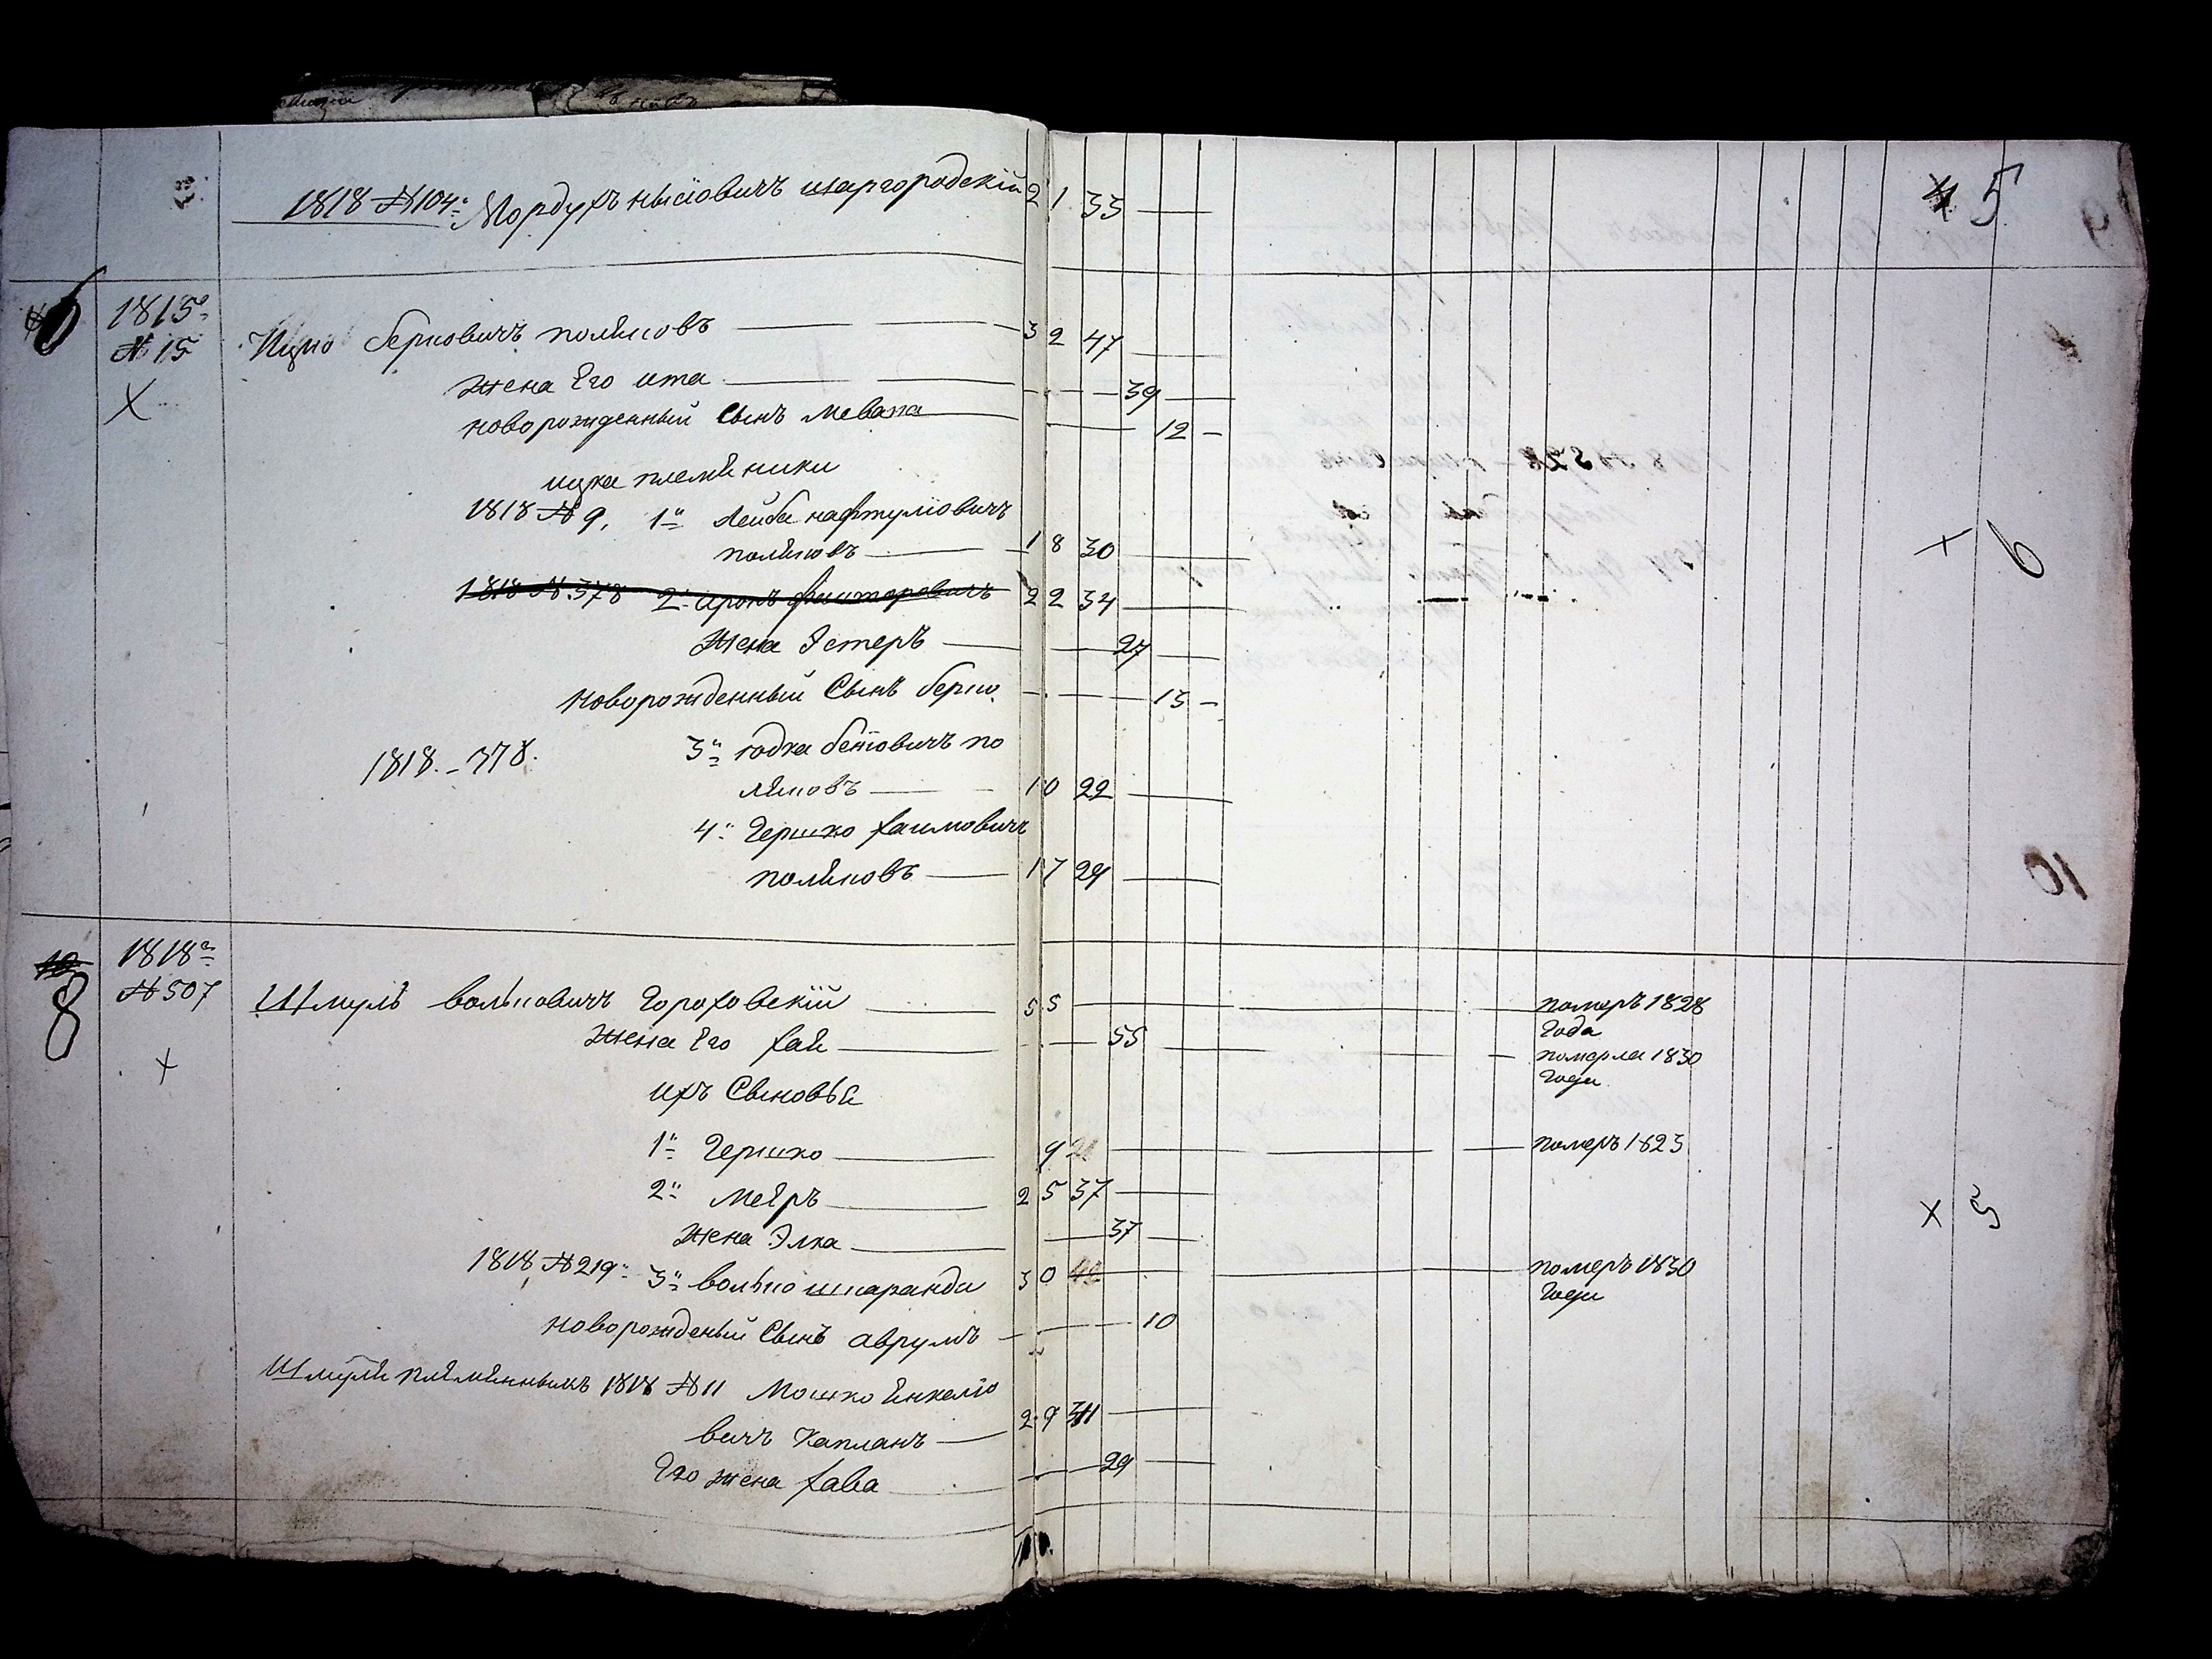 1818 № 104. Мордухъ нысiовичъ шаргородскiй 21 33 5
6 1815 № 15 Ицко берковичъ поляковъ 32 47
жена Его ита 39
новорожденный Сынъ 12
ицка племяники
1818 № 9, 1й Лейба нафтулiовичъ
поляковъ 18 30 6
1818 № 378 2й 22 34
Жена Эстеръ 27
новорожденный Сынъ берко 13
1818 - 378. 3й юдка по
ляковъ 10 22
4й Гершко хаимовичъ
поляковъ 17 29
10
8 1818 № 507 Шмуль вольковичъ Гороховскiй 55 померъ 1828
Года
Жена Его хая 55 померла 1830
Года
ихъ Сыновья
1й Гершко 9 21 померъ 1823
2й Меѣръ 25 37
Жена Элка 37 5
1818 № 219 3й волько шкаранда 30 42 померъ 1830
Года
новорожденый Сынъ аврумъ 10
Шмуля племянникъ 1818 № 11 Мошко Янкелiо
вичъ Капланъ 29 41
Его жена хава 29